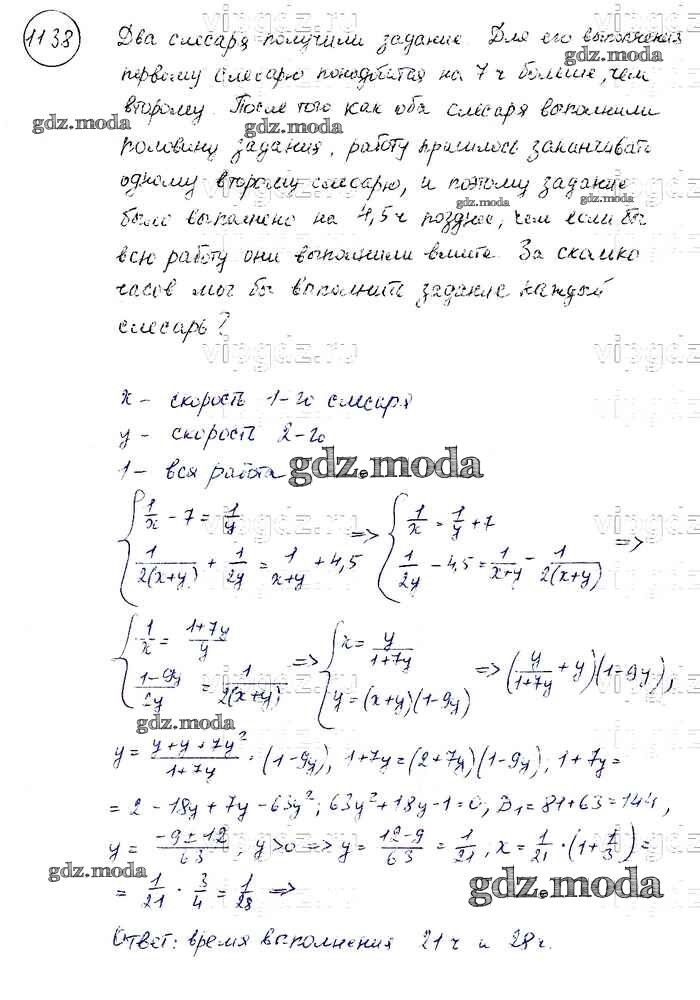 1138
Два слесаря получили задание. Для его выполнения
первому слесарю понадобится на 7 ч больше, чем
второму. После того как оба слесаря выполнили
половину задания, работу пришлось заканчивать
одному второму слесарю, и поэтому задание
было выполнено на 4,5 ч позднее, чем если бы
всю работу они выполнили вместе. За сколько
часов мог бы выполнить задание каждый
слесарь?
x – скорость 1-го слесаря
y – скорость 2-го
1 – вся работа
{ 1/x - 7 = 1/y ; 1/(2(x+y)) + 1/(2y) = 1/(x+y) + 4,5 => { 1/x = 1/y + 7 ; 1/(2y) - 4,5 = 1/(x+y) - 1/(2(x+y)) =>
{ 1/x = (1+7y)/y ; (1-9y)/(2y) = 1/(2(x+y)) => { x = y/(1+7y) ; y = (x+y)(1-9y) => (y/(1+7y) + y)(1-9y),
y = (y+y+7y²)/(1+7y) · (1-9y), 1+7y = (2+7y)(1-9y), 1+7y =
= 2 - 18y + 7y - 63y²; 63y² + 18y - 1 = 0, D₁ = 81+63 = 144,
y = (-9 ± 12)/63, y>0 => y = (12-9)/63 = 1/21, x = 1/21 · (1+1/3) =
= 1/21 · 3/4 = 1/28 =>
Ответ: время выполнения 21 ч и 28 ч.
gdz.moda
gdz.moda
gdz.moda
gdz.moda
gdz.moda
gdz.moda
gdz.moda
gdz.moda
gdz.moda
vipgdz.ru
vipgdz.ru
vipgdz.ru
vipgdz.ru
vipgdz.ru
vipgdz.ru